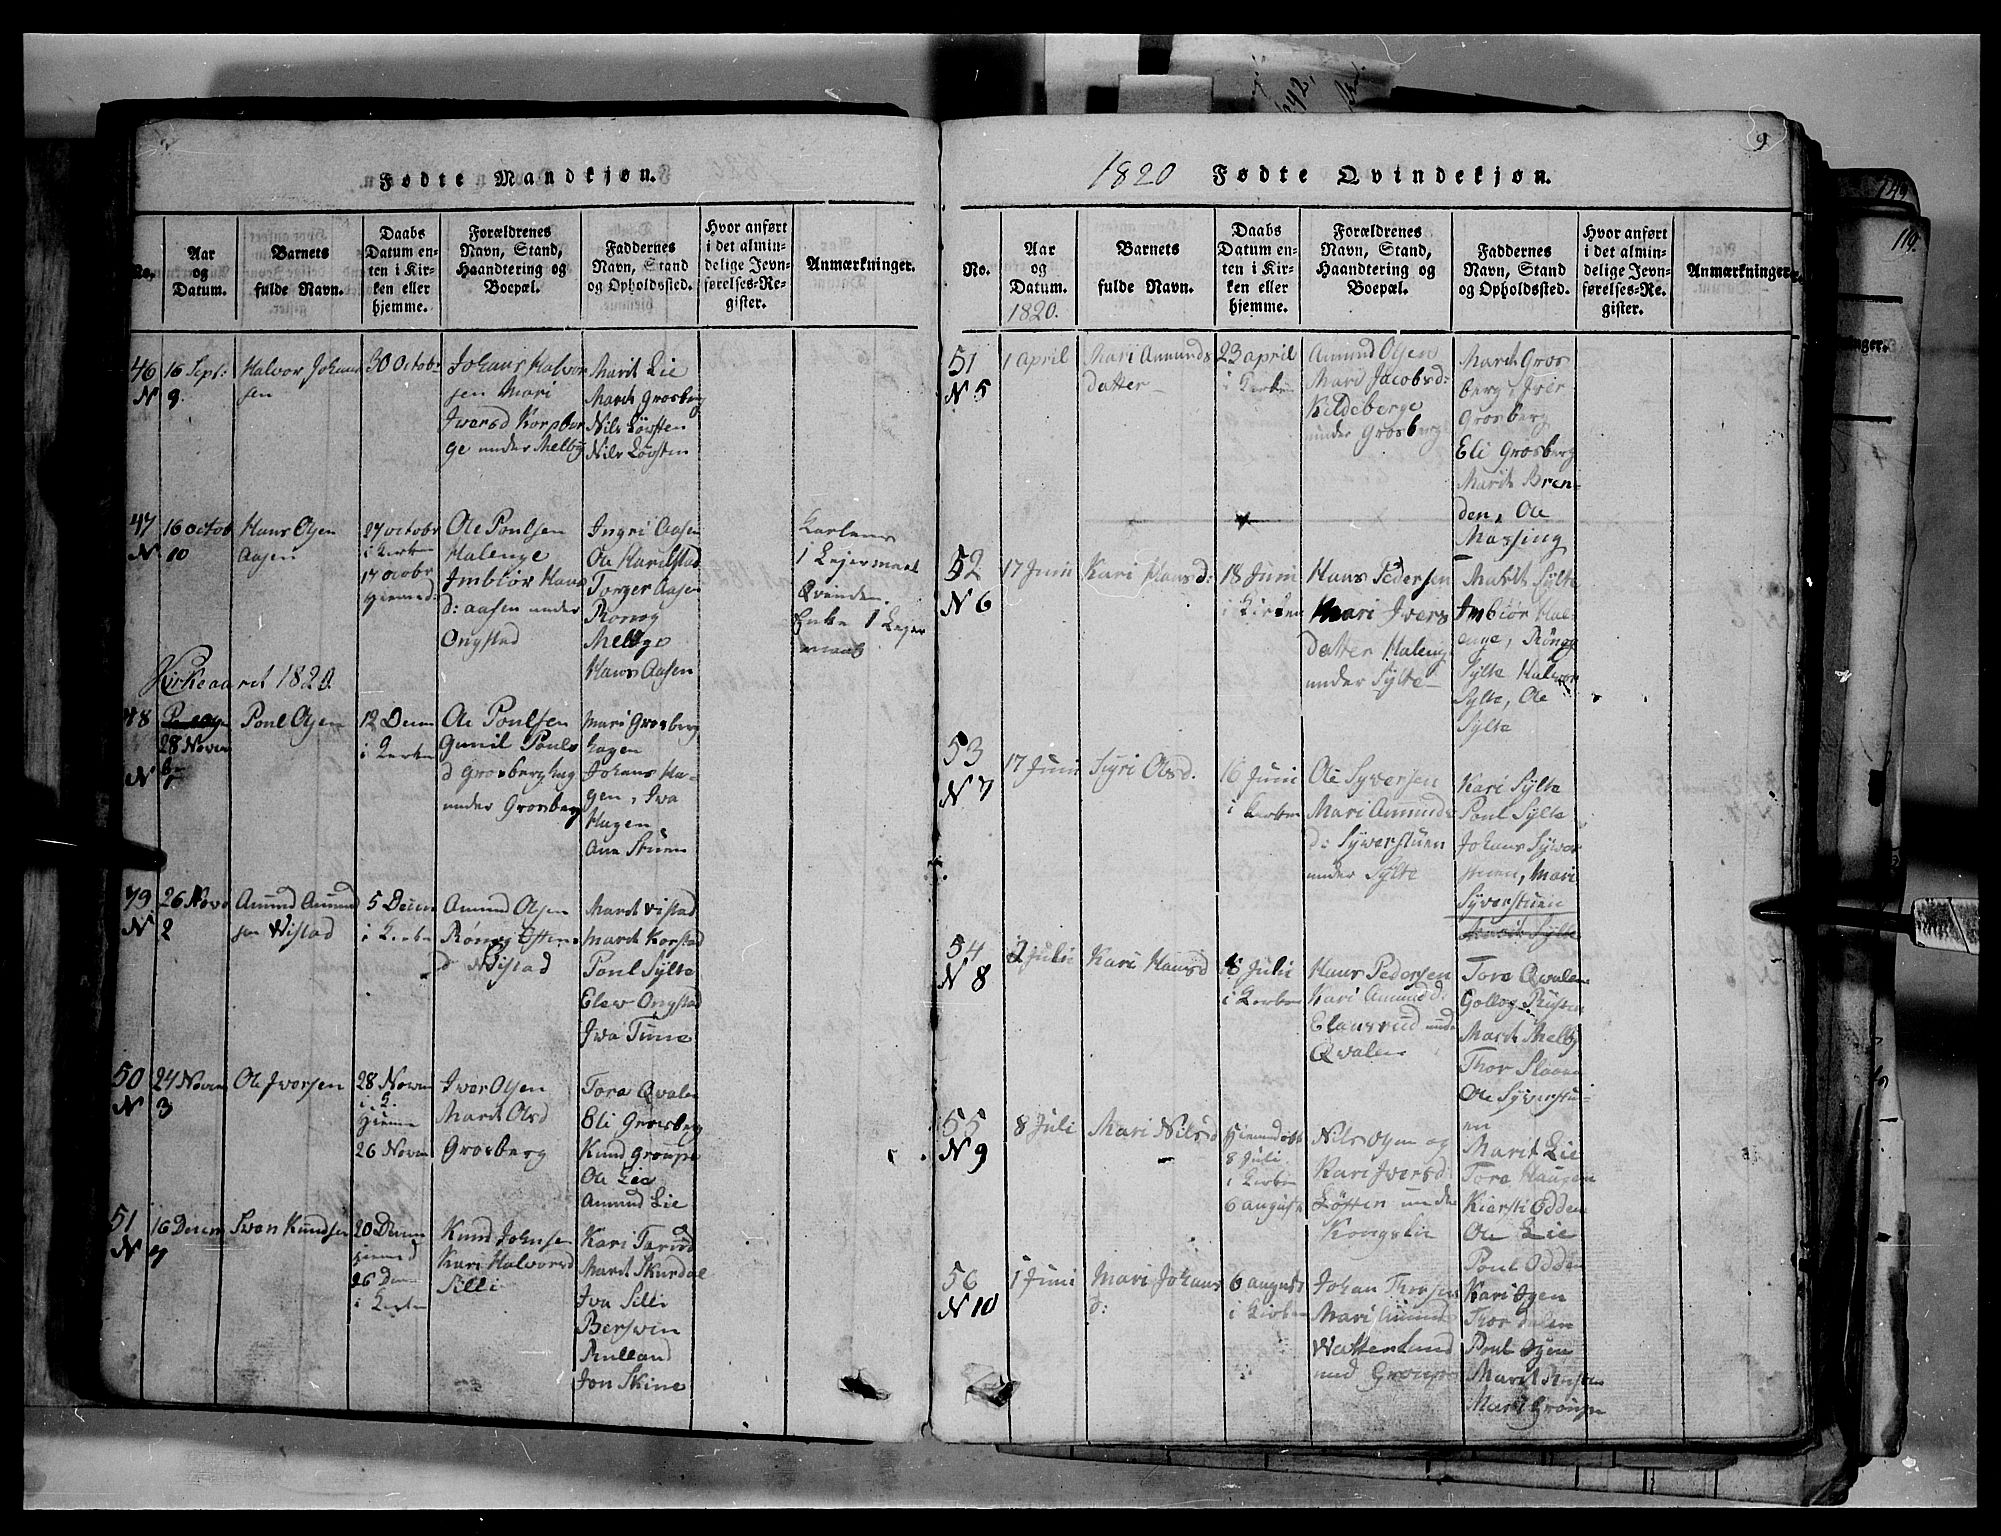 Fødte Mandkjøn.
No.
Aar
og
Datum.
Barnets
fulde Navn.
Daabs
Datum en-
ten i Kir-
ken eller
hjemme.
Forældrenes
Navn, Stand,
Haandtering og
Boepæl.
Faddernes
Navn, Stand
og Opholdssted.
Hvor anført
i det almin-
delige Jevn-
førelses-Re-
gister.
Anmærkninger.
46
N
16 Sept:
9
Halvor Johans
sen
30 Octobr
Johans Halvor
sen Mari
Iversd Korsbor
ge under Melby
Marit Lie
Marit Grosberg
Nils Løvsten
Nils Løvsten
47
N
16 octob
10
Hans Olsen
Aasen
27 octobr
i Kirken
17 ocobr
Hiemed:
Ole Poulsen
Halenge
Imbiør Hans
d: aasen under
Ongstad
Ingri Aasen
Ole Harilstad
Torger Aasen
Ronog
Melbye
Hans Aasen
Karlens
1 Lejermaal
Qvinden
Enke 1 Lejer
maal
Kirkeaaret 1820.
48
N
28 Novem
br
1
Poul Olsen
12 Decem
i Kirken
Ole Poulsen
Gunil Pouls
d Grosberghag
under Grosberg
Mari Grosberg
hagen
Johans Ha-
gen, Iva
Hagen
Ane Stuen
49
N
26 Nov
2
Amund Amund
sen Wistad
5 Decem
i Kirken
Amund Olsen
Rønog Ostens
d Wistad
Marit Vistad
Marit Korstad
Poul Sylte
Elev Ongstad
Iva Tune
50
N
24 Novem
3
Ole Iversen
28 Novem
i K.
Hieme
26 Novem
Iver Olsen
Marit Olsd
Grosberg
Tora Qvalen
Eli Grosberg
Knud Groupe
Ole Lie
Amund Lie
51
N
16 Decem
4
Sven Knudsen
20 Decem
Hiemed
26 Decem
i Kirken
Knud Johnsen
Kari Halvorsd
Silli
Kari Tarud
Marit Skurdal
Iva Silli
Bersven
Rulland
Jon Skine
9
1820 Fødte Qvindekjøn.
No.
Aar
og
Datum.
1820.
Barnets
fulde Navn.
Daabs
Datum en-
ten i Kir-
ken eller
hjemme.
Forældrenes
Navn, Stand,
Haandtering og
Boepæl.
Faddernes
Navn, Stand
og Opholdssted.
Hvor anført
i det almin-
delige Jevn-
førelses-Re-
gister.
Anmærkninger.
51
N 5
1 April
Mari Amunds
datter
23 april
i Kirken
Amund Olsen
Mari Jacobsd:
Kildeberge
under Grosberg
Marit Gros
berg, Iver
Grosberg
Eli Grosberg
Marit Bren-
den, Ole
Massing
52
N 6
17 Juni
Kari Hansd:
18 Juni
i Kirken
Hans Pedersen
Mari Ivers
datter Haleng
under Sylte
Marit Sylte
Imbiør Hal-
enge, Rønog
Sylte Halvor
Sylte, Ole
Sylte
53
N 7
17 Juni
Sigri Olsd.
16 Juni
i Kirken
Ole Syversen
Mari Amunds
d: Syverstuen
under Sylte
Kari Sylte
Poul Sylte
Johans Syver
stuen, Mari
Syverstuen
Marit Sylte
54
N 8
2 Juli
Kari Hansd
Juli
i Kirken
Hans Pedersen
Kari Amundd:
Elansrud unde
Qvalen
Tora Qvalen
Gollog Rusten
Marit Melby
Thor Slaaen
Ole Syverstu-
en
55
N 9
8 Juli
Mari Nilsd
Hiemedøbt
8 Juli
i Kirken
6 august
Nils Olsen og
Kari Iversd:
Løsten unde
Kongslie
Marit Lie
Tora Haugen
Kiersti Odden
Ole Lie
Poul Odden
56
N 10
1 Juni
Mari Johans
d:
6 august
i Kirken
Johan Thorsen
Mari Amunds
Watterlund
und Groupe
Kari Øyen
Thor Dalen
Poul Øyen
Marit Rusten
Marit Groupe
119.